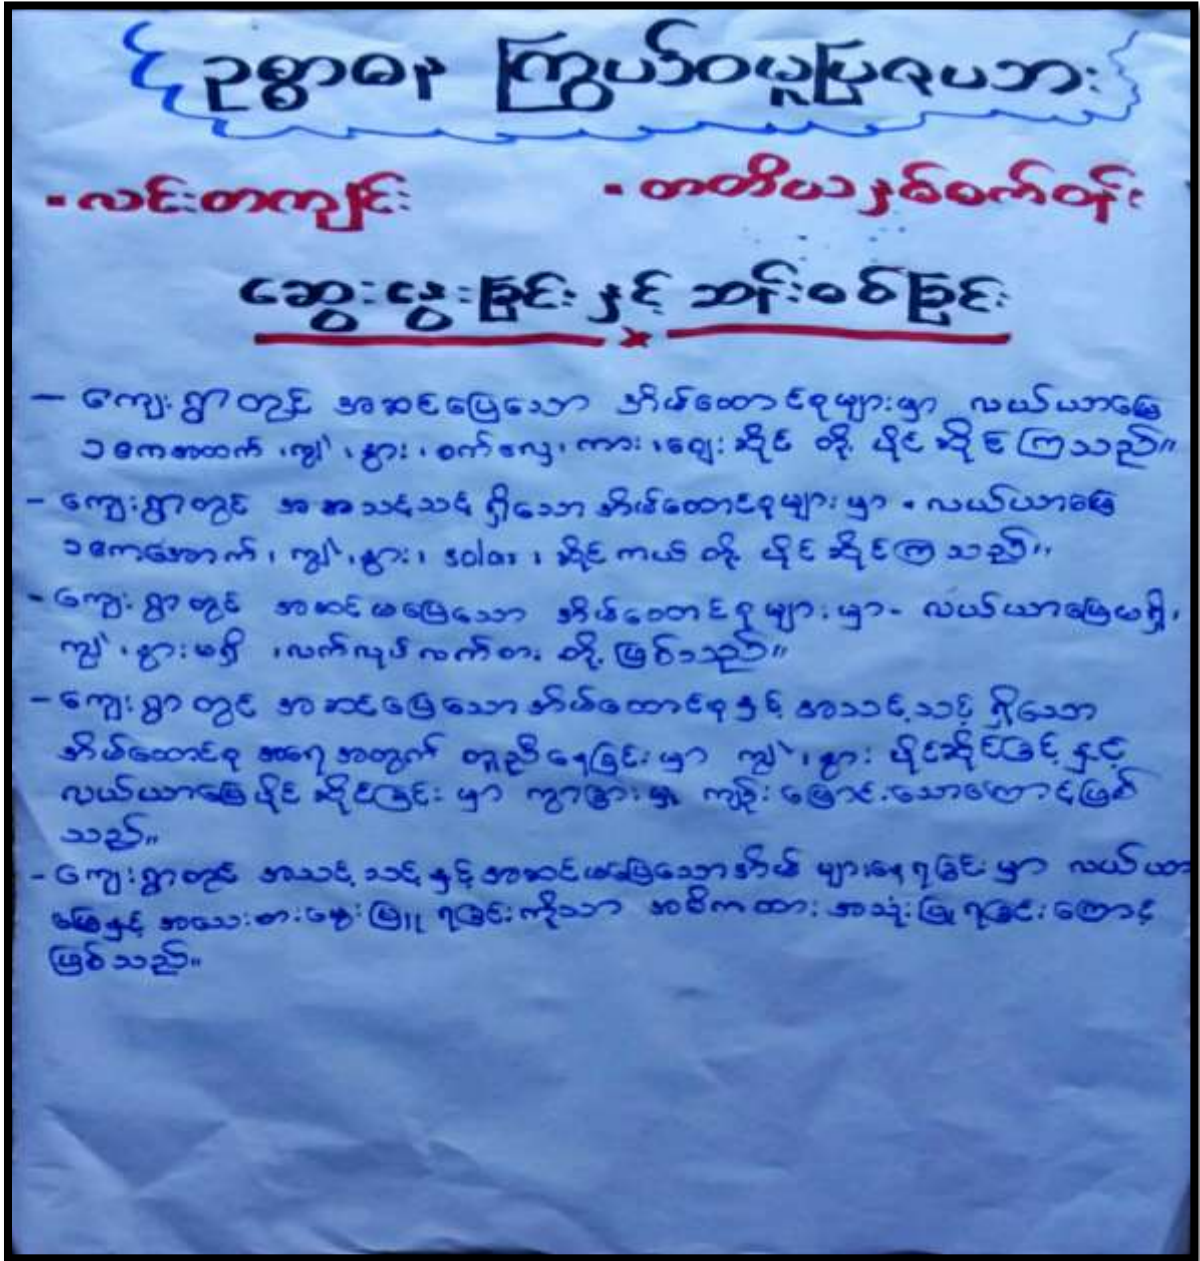 ဥစ္စာဓန ကြွယ်ဝမှုပြဇယား
- လင်းတကျင်း - တတိယနှစ်စက်ဝန်း
ဆွေးနွေးခြင်းနှင့် ဆန်းစစ်ခြင်း
- ကျေးရွာတွင် အဆင်ပြေသော အိမ်ထောင်စုများမှာ လယ်ယာမြေ
၁ ဧကအထက်၊ ကျွဲ၊ နွား၊ စက်လှေ၊ ကား၊ ဈေးဆိုင် တို့ ပိုင်ဆိုင်ကြသည်။
- ကျေးရွာတွင် အအသင့်သင့် ရှိသော အိမ်ထောင်စုများမှာ - လယ်ယာမြေ
၁ ဧကအောက်၊ ကျွဲ၊ နွား၊ solar၊ ဆိုင်ကယ် တို့ ပိုင်ဆိုင်ကြသည်။
- ကျေးရွာတွင် အဆင်မပြေသော အိမ်ထောင်စုများမှာ - လယ်ယာမြေမရှိ၊
ကျွဲ၊ နွားမရှိ၊ လက်လုပ်လက်စား တို့ဖြစ်သည်။
- ကျေးရွာတွင် အဆင်ပြေသောအိမ်ထောင်စုနှင့် အသင့်သင့် ရှိသော
အိမ်ထောင်စု အရေအတွက် တူညီနေခြင်းမှာ ကျွဲ၊ နွား ပိုင်ဆိုင်ခြင်းနှင့်
လယ်ယာမြေပိုင်ဆိုင်ခြင်းမှာ ကွာခြားမှု ကျဉ်းမြောင်းသောကြောင့်ဖြစ်
သည်။
- ကျေးရွာတွင် အသင့်သင့်နှင့်အဆင်မပြေသောအိမ် များနေရခြင်းမှာ လယ်ယာ
မြေနှင့် အသေးစားမွေးမြူရခြင်းကိုသာ အဓိကထား အသုံးပြုရခြင်းကြောင့်
ဖြစ်သည်။